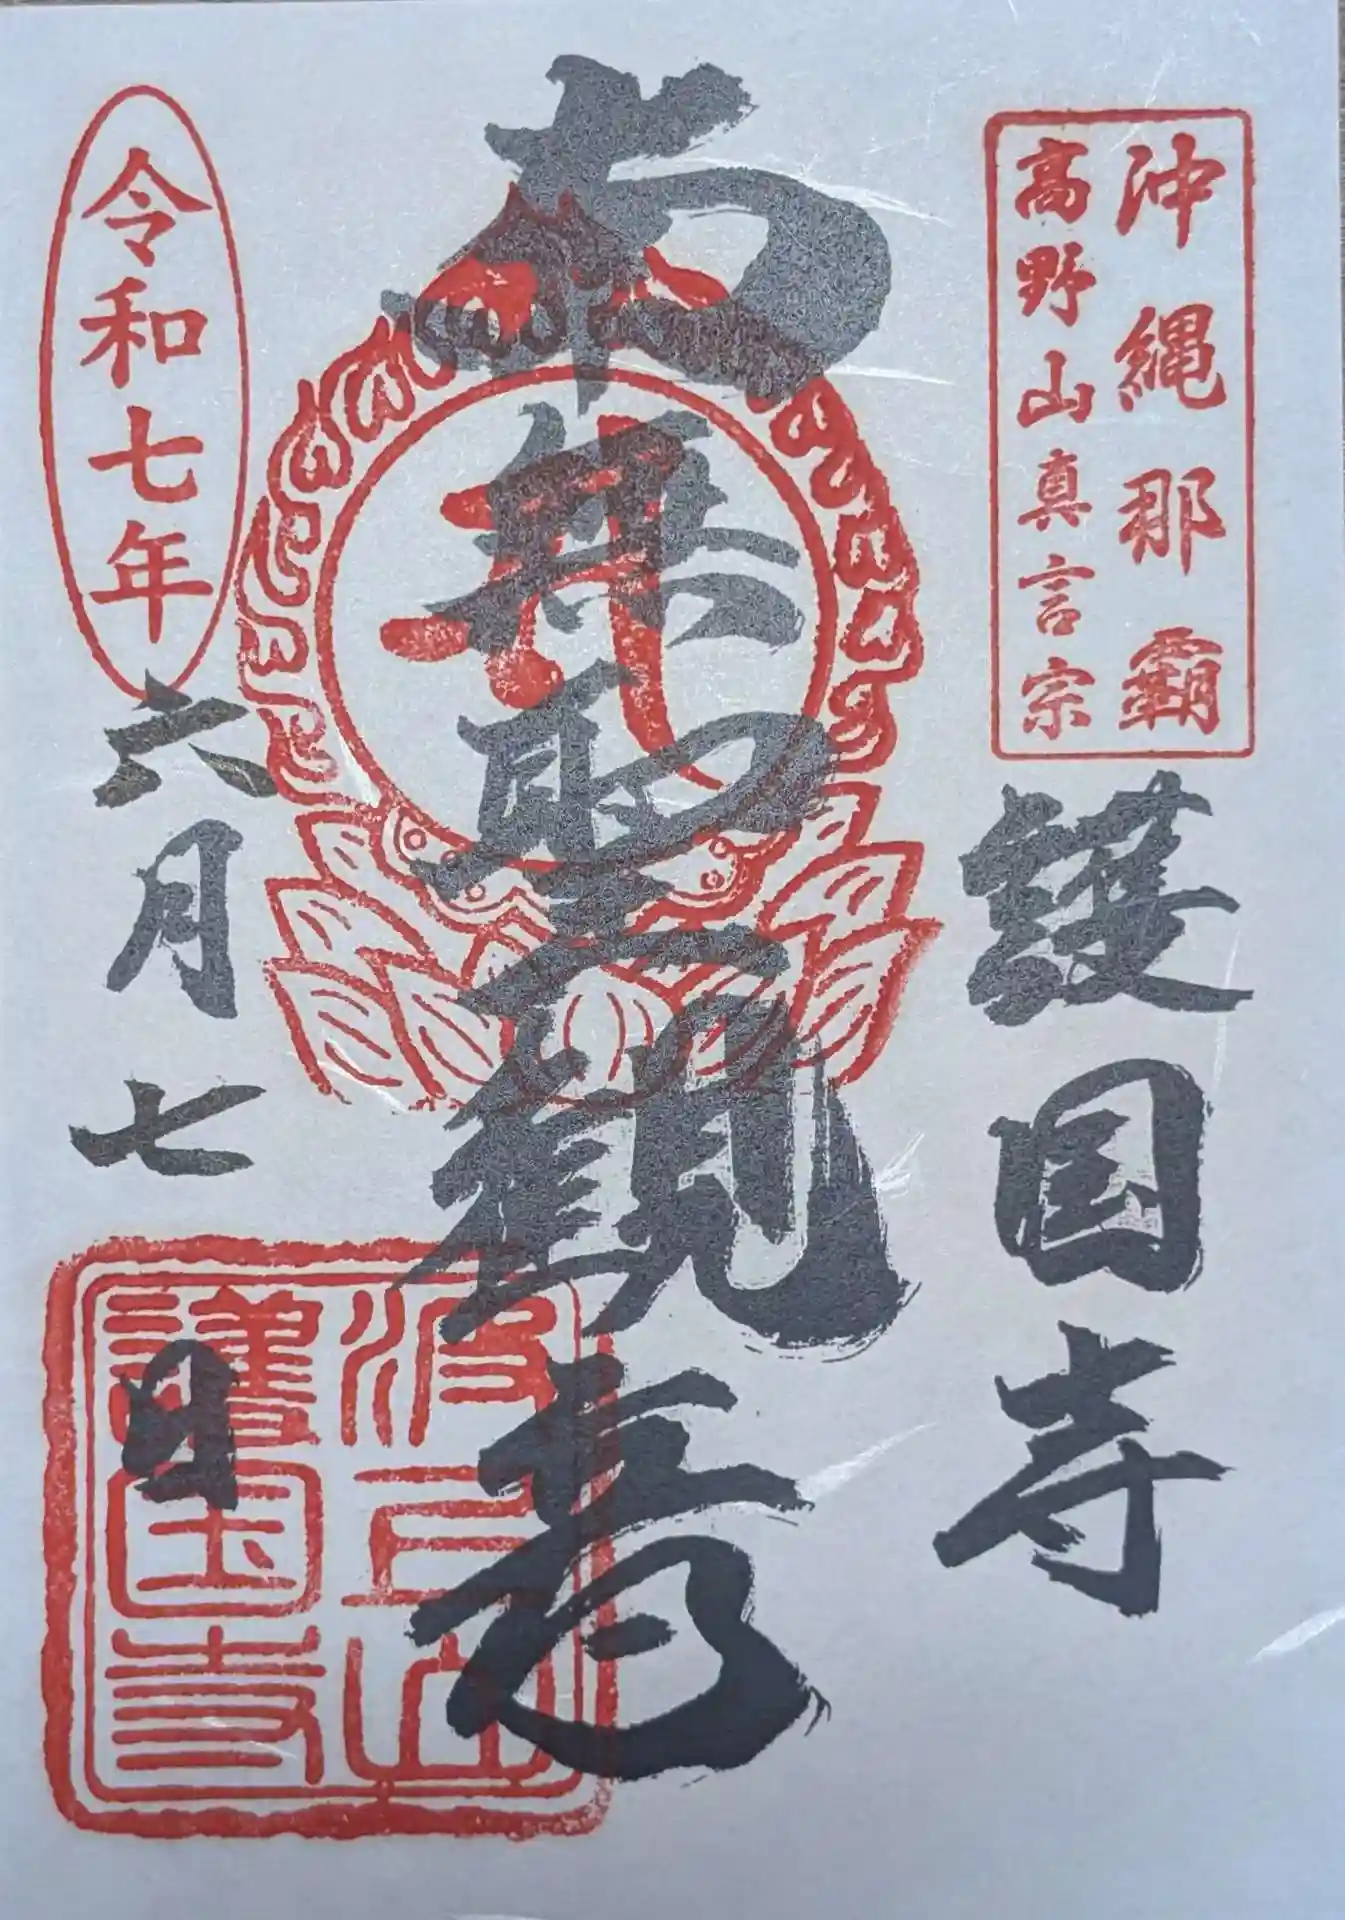 沖縄那覇
高野山真言宗
護国寺
南無聖観音
令和七年
六月七日
波上山
護国寺